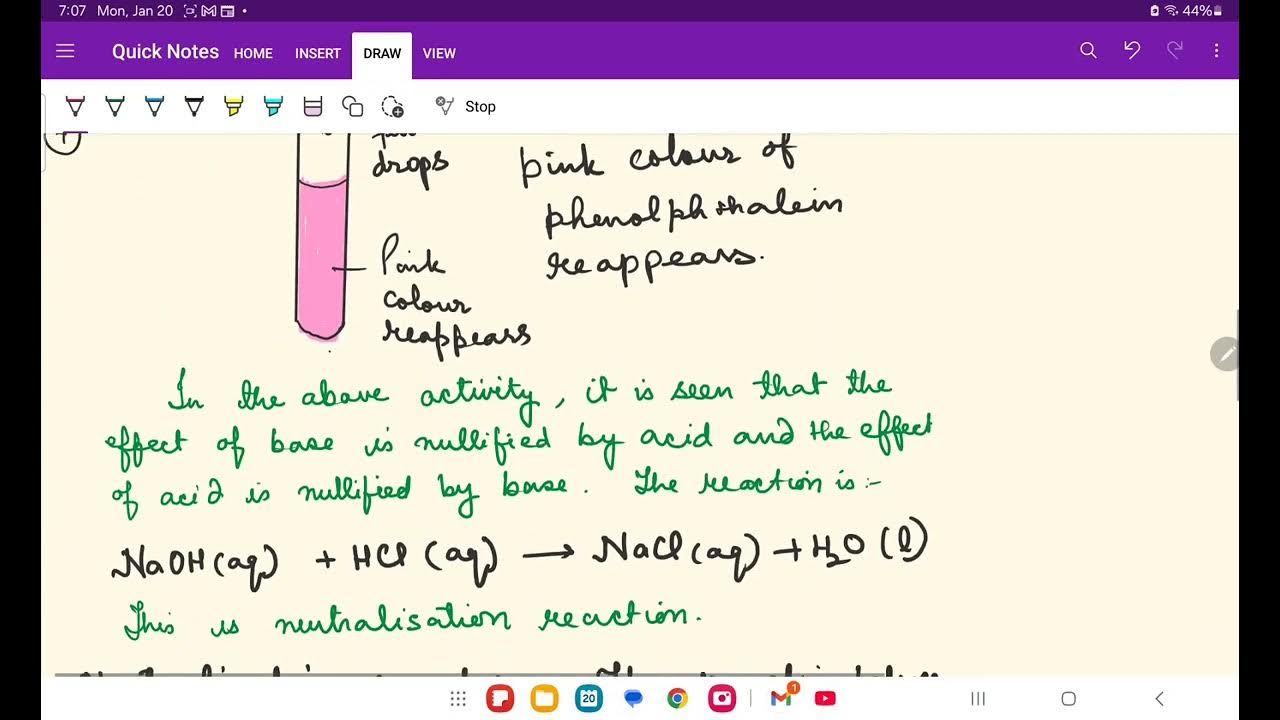 7:07 Mon, Jan 20
44%
Quick Notes HOME INSERT DRAW VIEW
Stop
drops
pink colour of
phenolphthalein
reappears.
Pink
colour
reappears
In the above activity, it is seen that the
effect of base is nullified by acid and the effect
of acid is nullified by base. The reaction is :-
NaOH (aq) + HCl (aq) → NaCl (aq) + H₂O (l)
This is neutralisation reaction.
20
1